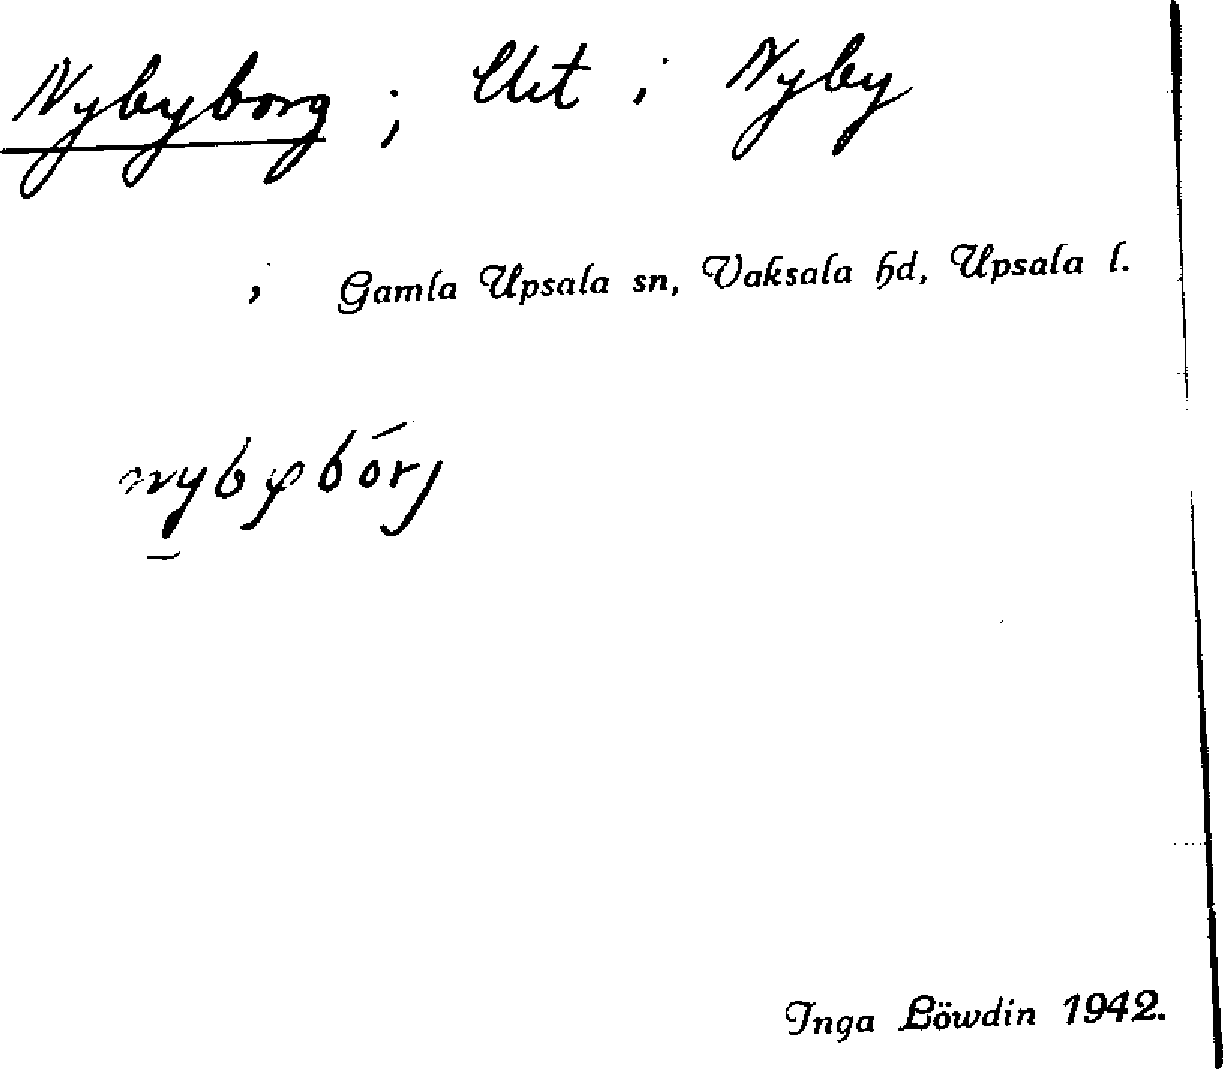 Nybyborg ; Urt i Nyby
, Gamla Upsala sn, Vaksala hd, Upsala l.
nybybórj
Inga Löwdin 1942.